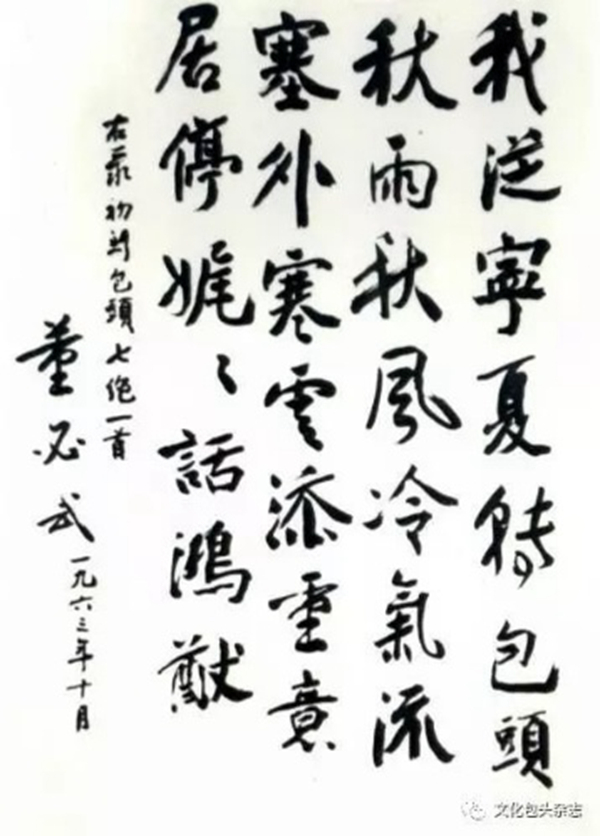 我从寧夏轉包頭
秋雨秋風冷氣流
塞外寒雲添重意
居停娓〻話鴻猷
右录初到包頭七绝一首
董必武
一九六三年十月
文化包头杂志